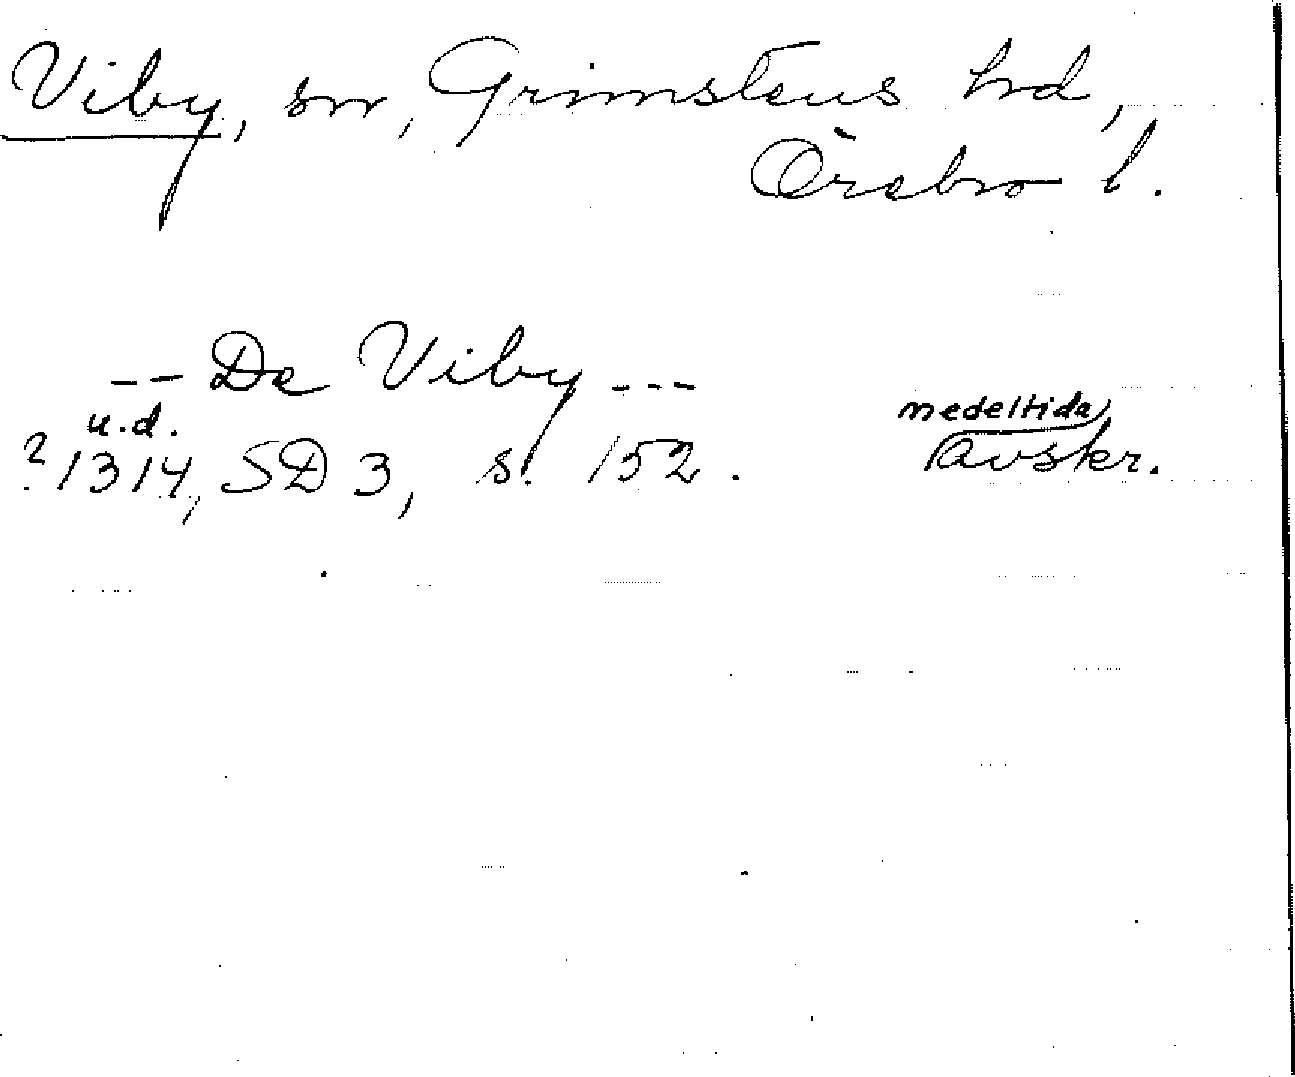 Viby, sn, Grimstens hd,
Örebro l.
-- De Viby ---
u.d.
medeltida
? 1314, SD 3, s. 152. Avskr.